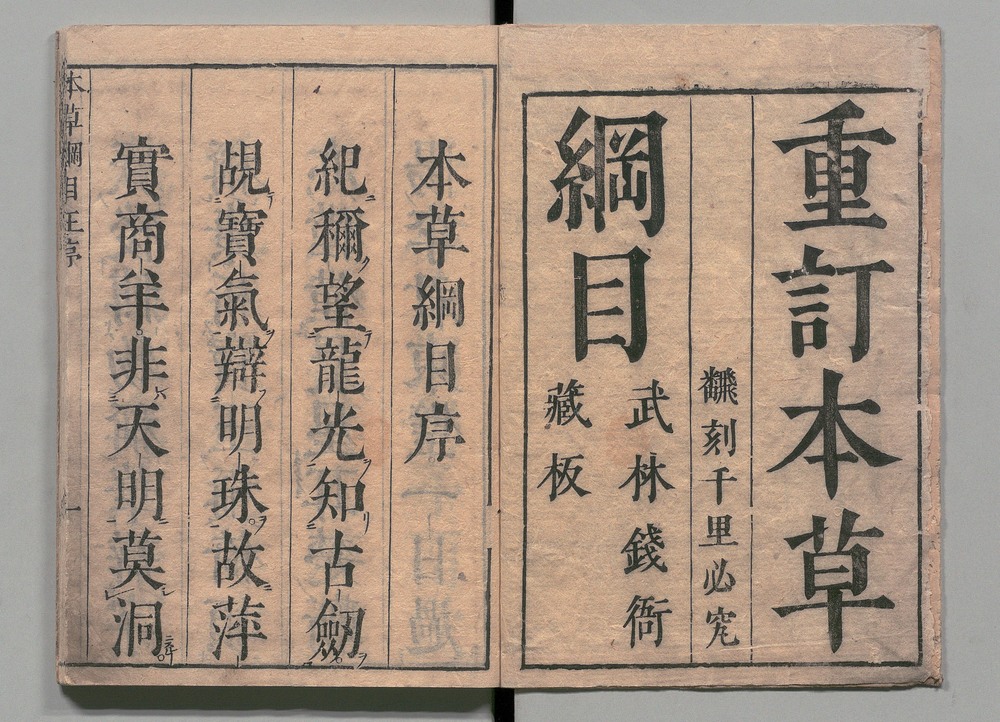 重訂本草
飜刻千里必究
綱目
武林錢衙
藏板
本草綱目序
紀穪望龍光知古劒
覘寶氣辯明珠故萍
實商羊非天明莫洞
本草綱目王序
一